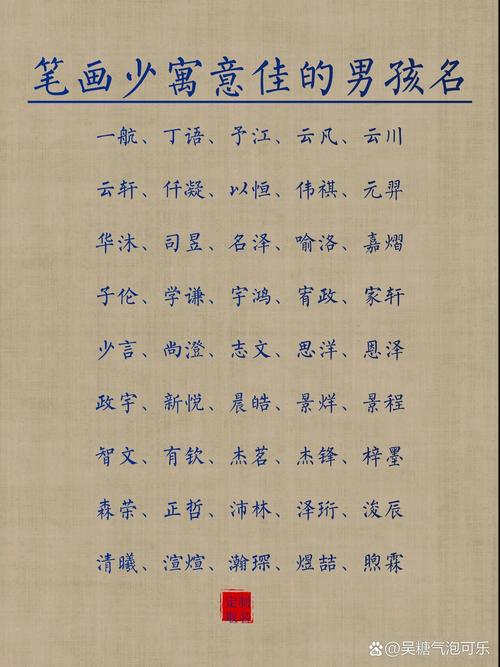 笔画少寓意佳的男孩名
一航、丁语、予江、云凡、云川
云轩、仟凝、以恒、伟祺、元羿
华沐、司昱、名泽、喻洛、嘉熠
子伦、学谦、宇鸿、宥政、家轩
少言、尚澄、志文、思洋、恩泽
政宇、新悦、晨皓、景烊、景程
智文、有钦、杰茗、杰锋、梓墨
森荣、正哲、沛林、泽珩、浚辰
清曦、渲煊、瀚琛、煜喆、煦霖
定制
取名
百家号/吴糖气泡可乐